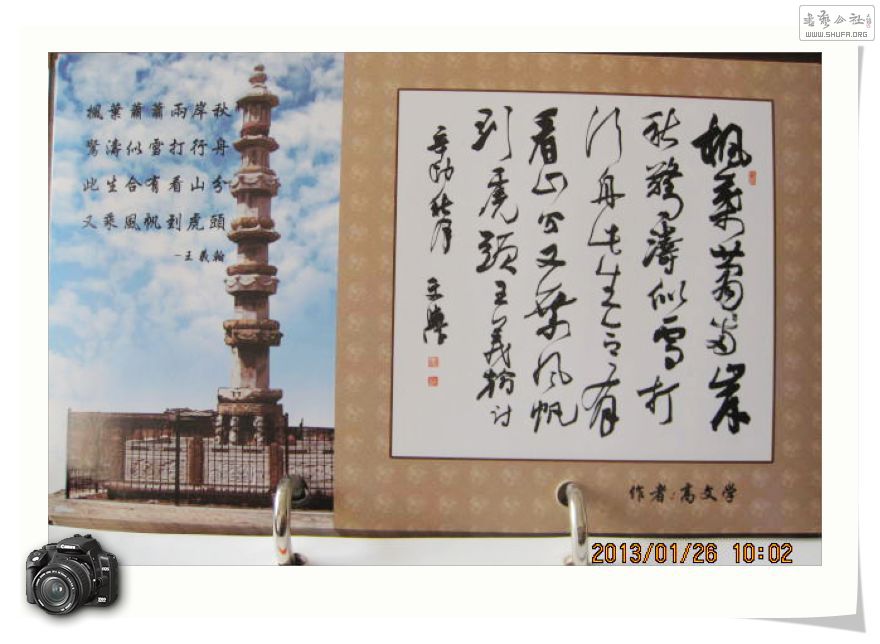 書藝公社
WWW.SHUFA.ORG
楓葉蕭蕭兩岸秋
驚濤似雪打行舟
此生合有看山分
又乘風帆到虎頭
－王義翰
楓葉蕭蕭岸
秋驚濤似雪打
行舟此生合有
看山分又乘風帆
到虎頭王義翰诗
辛卯秋月 文學
作者:高文学
2013/01/26 10:02
Canon